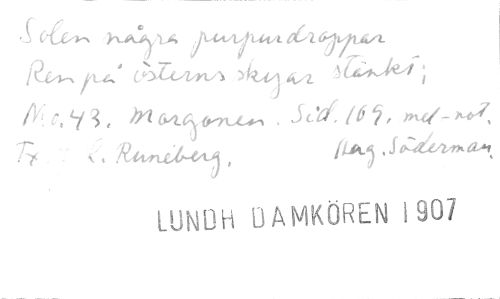 Solen några purpurdroppar
Ren på österns skyar stänkt;
No. 43. Morgonen. Sid. 169. mel-not.
Tx. L. Runeberg. Aug. Söderman.
LUNDH DAMKÖREN 1907